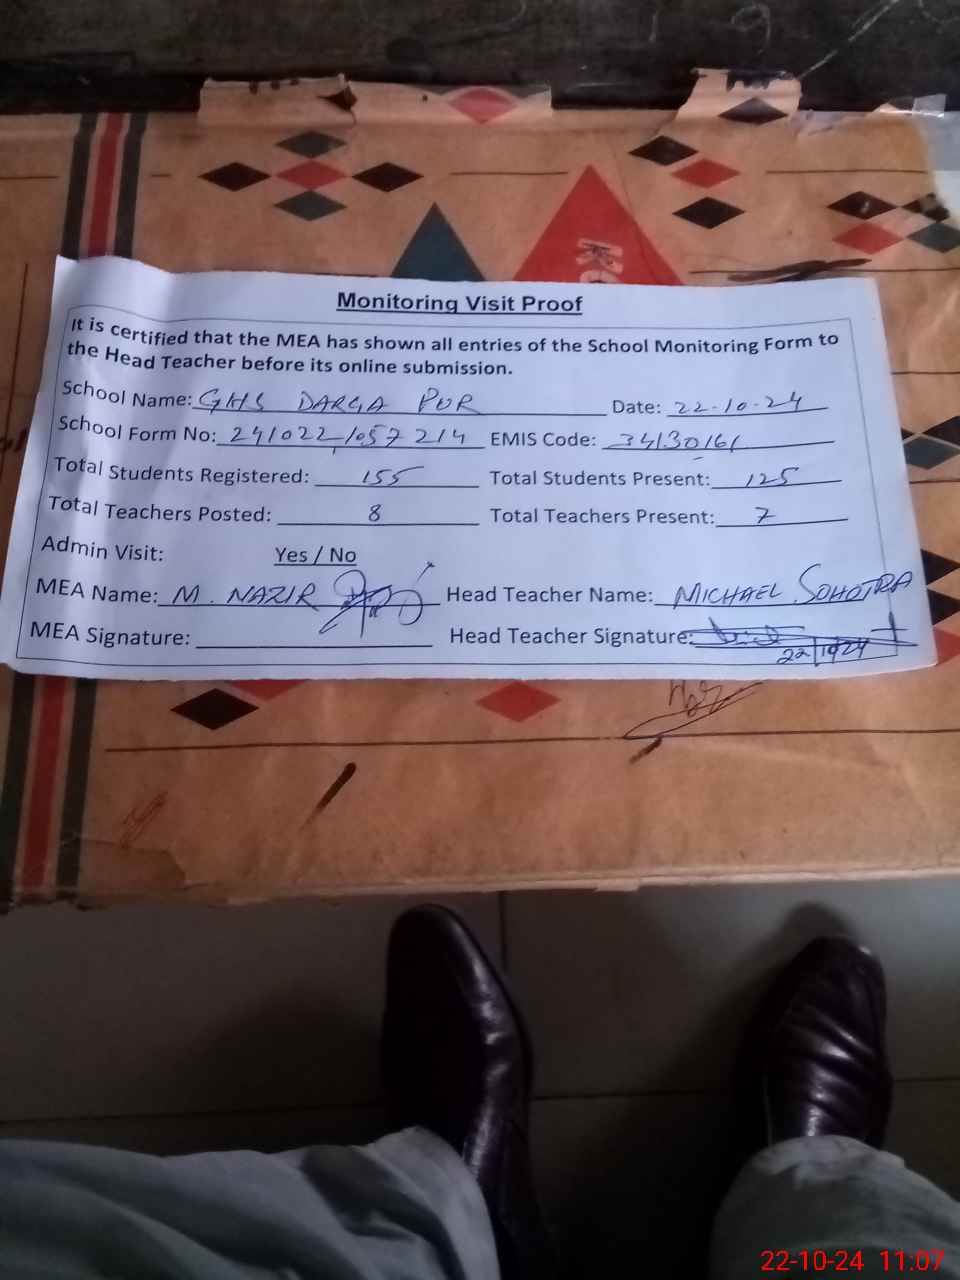 Monitoring Visit Proof
It is certified that the MEA has shown all entries of the School Monitoring Form to
the Head Teacher before its online submission.
School Name: GHS DARGA PUR Date: 22-10-24
School Form No: 2410221057214 EMIS Code: 34130161
Total Students Registered: 155 Total Students Present: 125
Total Teachers Posted: 8 Total Teachers Present: 7
Admin Visit: Yes / No
MEA Name: M. NAZIR Head Teacher Name: MICHAEL SOHOTRA
MEA Signature: Head Teacher Signature:
22/10/24
22-10-24 11:07